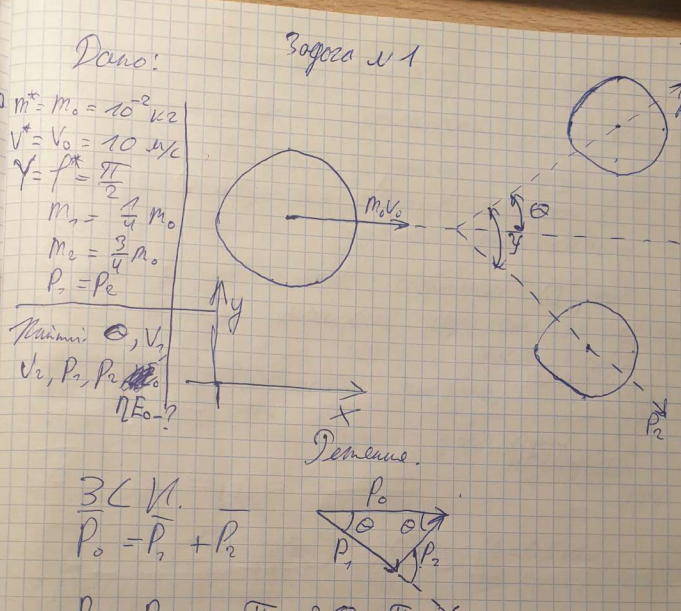 Задача №1
Дано:
m* = m₀ = 10⁻² кг
V* = V₀ = 10 м/с
γ = γ* = π/2
m₁ = 1/4 m₀
m₂ = 3/4 m₀
P₁ = P₂
Найти: Θ, V₁,
V₂, P₁, P₂
ηE₀ - ?
m₀V₀
Θ
γ
P₂
y
X
Решение.
ЗСИ.
P̅₀ = P̅₁ + P̅₂
P₀
Θ Θ
P₁ P₂